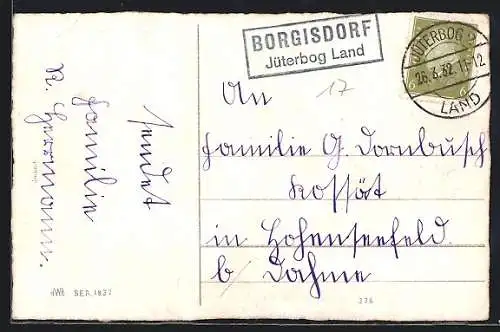 BORGISDORF
Jüterbog Land
JÜTERBOG 2
26.3.32.11-12
LAND
6 6
17
An
Familie G. Dornbusch
Kossät
in Hohenseefeld
b/ Dahme
sendet
Familie
R. Herrmann.
SER. 1837
276